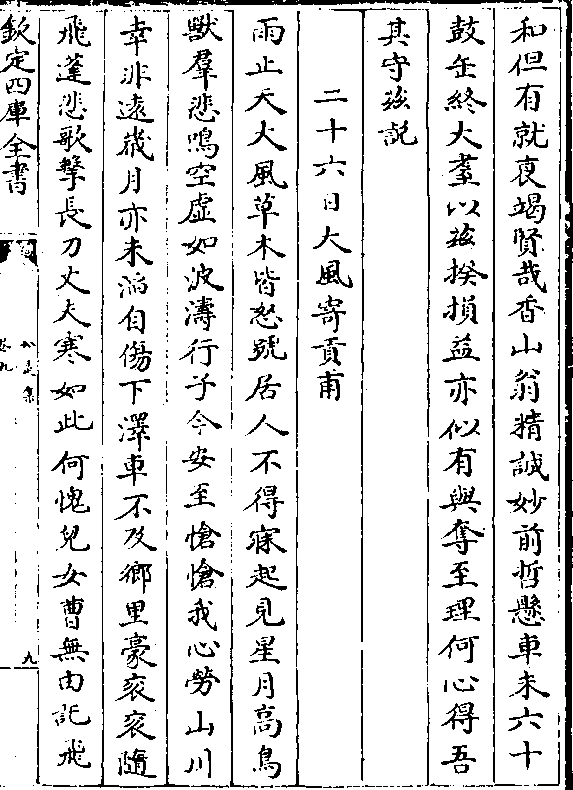 和但有就衰竭賢哉香山翁精誠妙前哲懸車未六十
鼓缶終大耋以茲揆損益亦似有與奪至理何心得吾
其守茲説
二十六日大風寄貢甫
雨止天大風草木皆怒號居人不得寐起見星月高鳥
獸羣悲鳴空虛如波濤行子今安至愴愴我心勞山川
幸非遠嵗月亦未滔自傷下澤車不及鄉里豪衮衮隨
飛蓬悲歌擊長刀丈夫寒如此何愧兒女曹無由託飛
欽定四庫全書
公是集
卷九
九